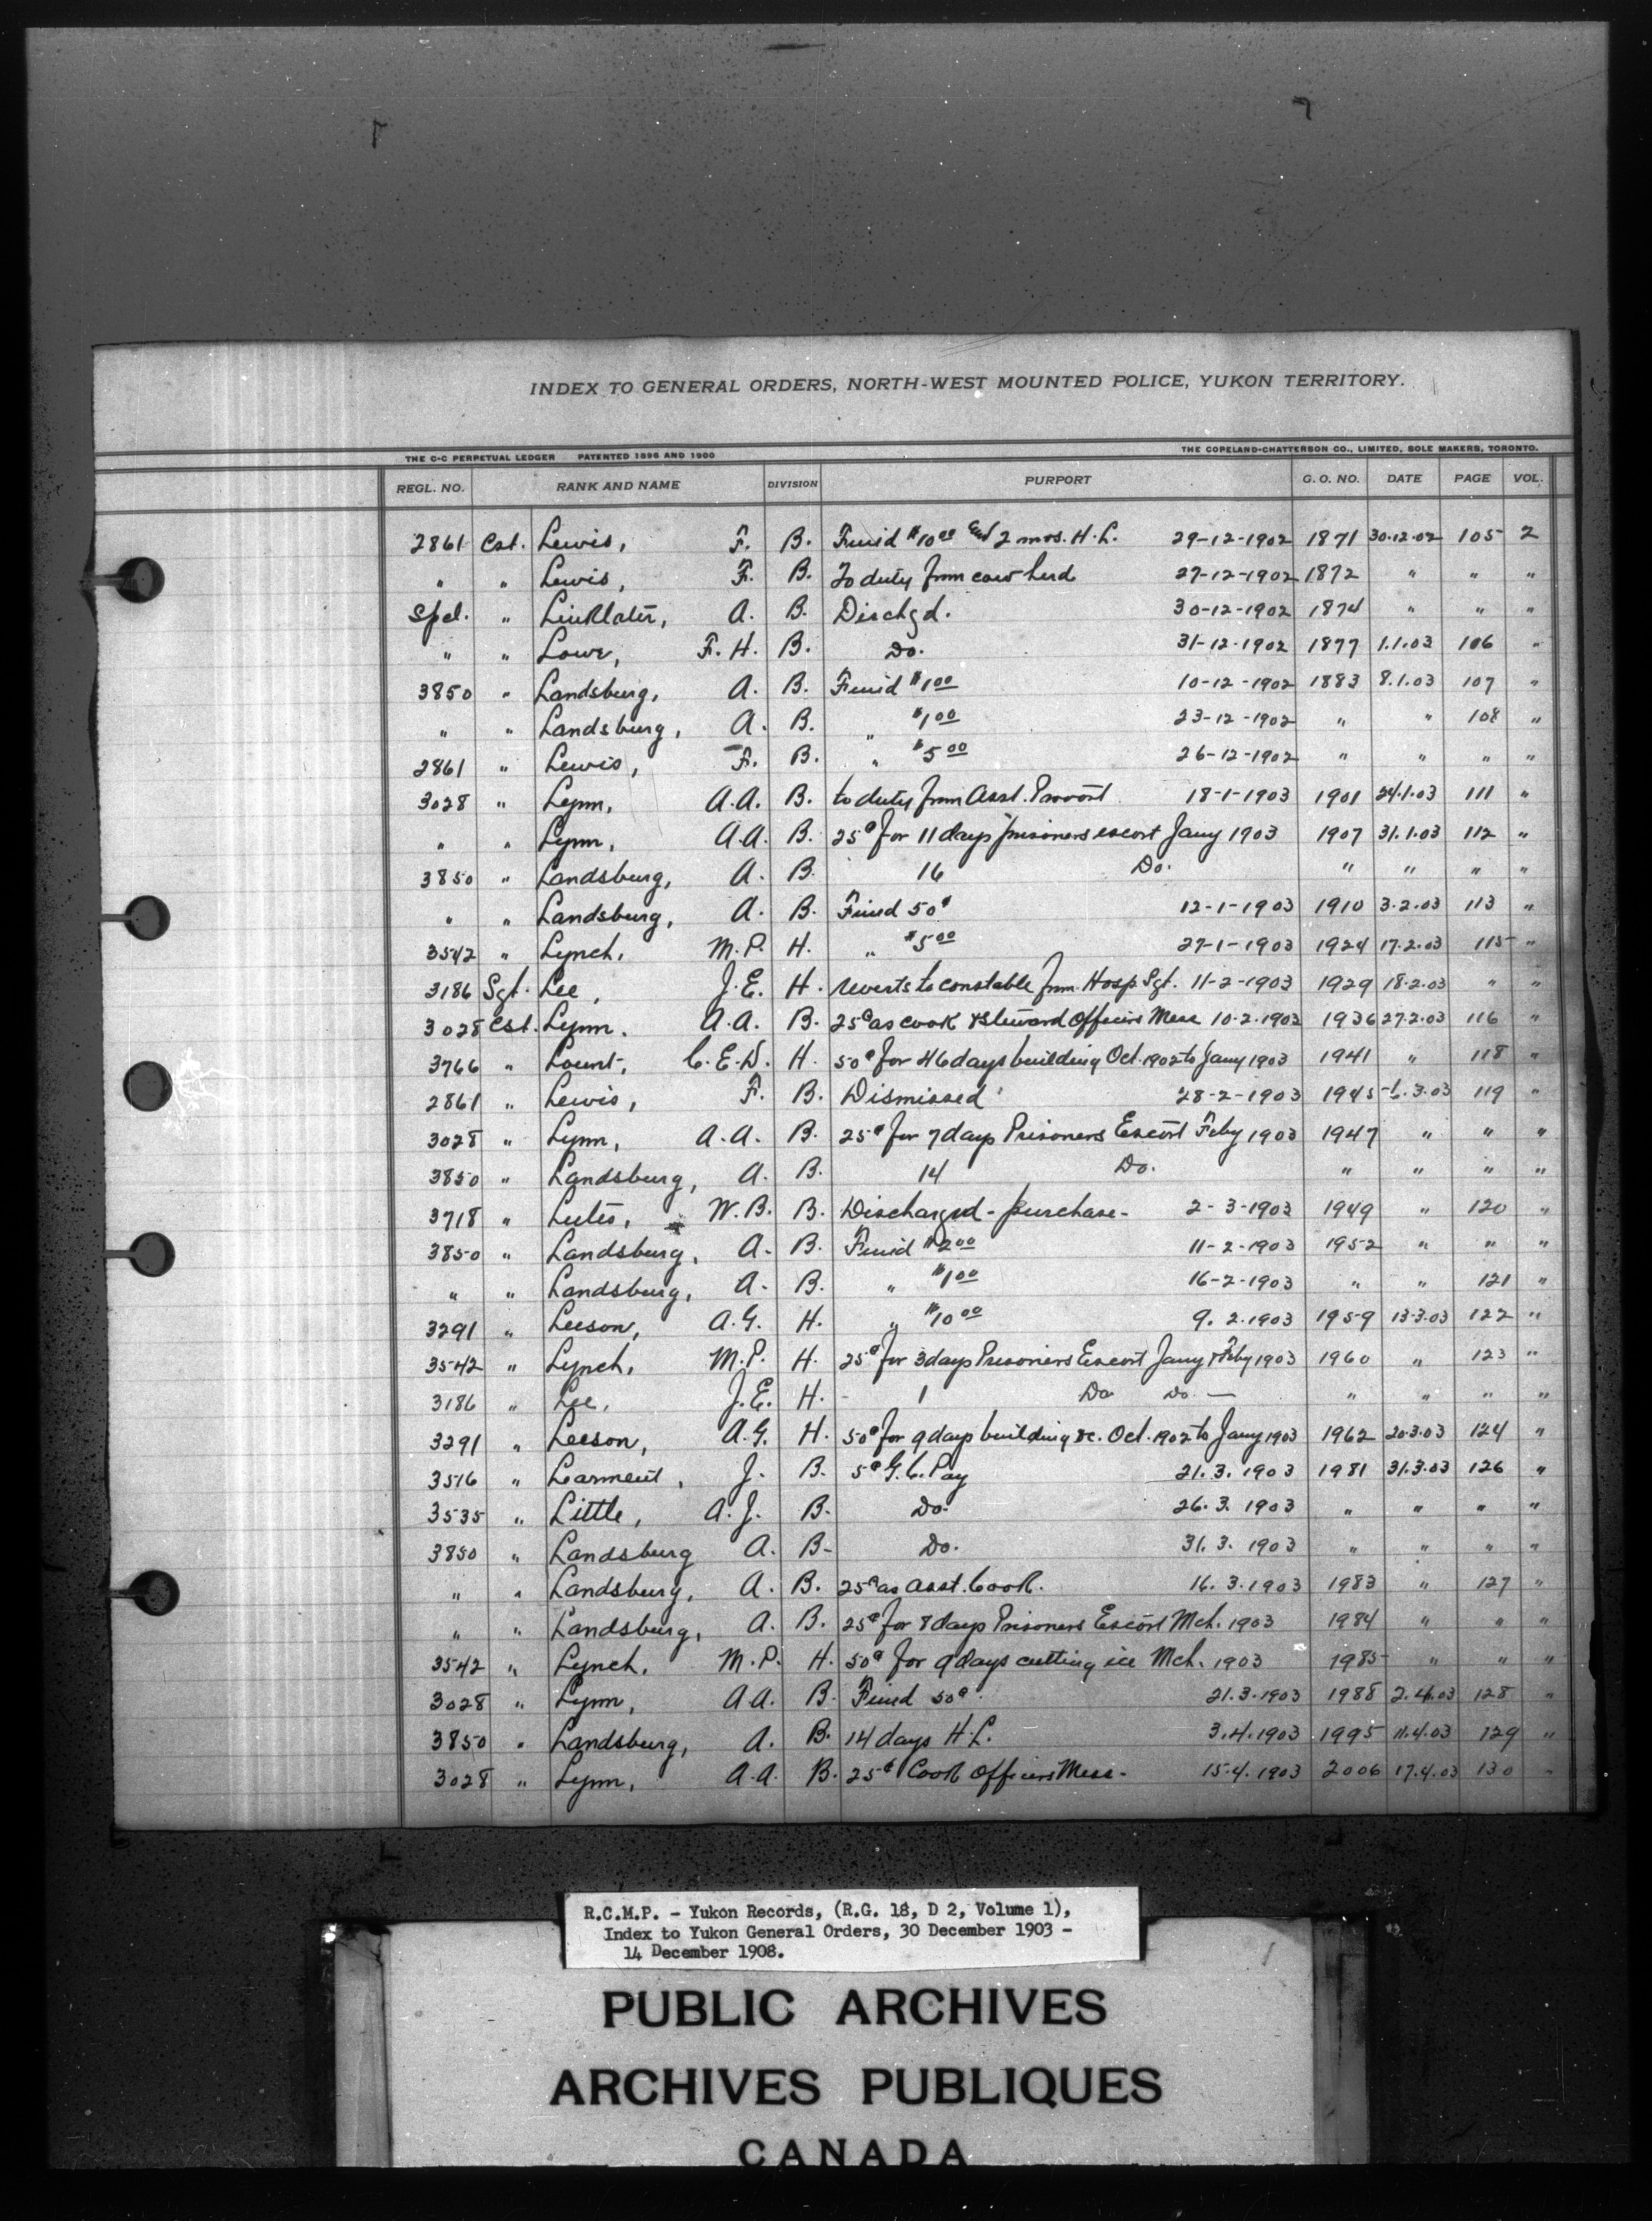 INDEX TO GENERAL ORDERS, NORTH-WEST MOUNTED POLICE, YUKON TERRITORY.
THE C-C PERPETUAL LEDGER PATENTED 1896 AND 1900 THE COPELAND-CHATTERSON CO., LIMITED, SOLE MAKERS, TORONTO.
REGL. NO. RANK AND NAME DIVISION PURPORT G. O. NO. DATE PAGE VOL.
2861 Cst. Lewis, F. B. Fined $10.00 and 2 mos. H.L. 29-12-1902 1871 30.12.02 105 2
" " Lewis, F. B. To duty from cow herd 27-12-1902 1872 " " "
Spcl. " Linklater, A. B. Dischgd. 30-12-1902 1874 " " "
" " Lowe, F. H. B. Do. 31-12-1902 1877 1.1.03 106 "
3850 " Landsburg, A. B. Fined $1.00 10-12-1902 1883 8.1.03 107 "
" " Landsburg, A. B. " $1.00 23-12-1902 " " 108 "
2861 " Lewis, F. B. " $5.00 26-12-1902 " " " "
3028 " Lynn, A.A. B. to duty from Asst. Provost 18-1-1903 1901 24.1.03 111 "
" " Lynn, A.A. B. 25¢ for 11 days prisoners escort Jany 1903 1907 31.1.03 112 "
3850 " Landsburg, A. B. 16 Do. " " " "
" " Landsburg, A. B. Fined 50¢ 12-1-1903 1910 3.2.03 113 "
3542 " Lynch, M.P. H. " $5.00 27-1-1903 1924 17.2.03 115 "
3186 Sgt. Lee, J.E. H. reverts to constable from Hosp Sgt. 11-2-1903 1929 18.2.03 " "
3028 Cst. Lynn. A.A. B. 25¢ as cook & Steward Officers Mess 10.2.1903 1936 27.2.03 116 "
3766 " Lount, C.E.D. H. 50¢ for 46 days building Oct. 1902 to Jany 1903 1941 " 118 "
2861 " Lewis, F. B. Dismissed 28-2-1903 1945 6.3.03 119 "
3028 " Lynn, A.A. B. 25¢ for 7 days Prisoners Escort Feby 1903 1947 " " "
3850 " Landsburg, A. B. 14 Do. " " " "
3718 " Lutes, W.B. B. Discharged - purchase - 2-3-1903 1949 " 120 "
3850 " Landsburg, A. B. Fined $2.00 11-2-1903 1952 " " "
" " Landsburg, A. B. " $1.00 16-2-1903 " " 121 "
3291 " Leeson, A.G. H. " $10.00 9.2.1903 1959 13.3.03 122 "
3542 " Lynch, M.P. H. 25¢ for 3 days Prisoners Escort Jany & Feby 1903 1960 " 123 "
3186 " Lee, J.E. H. - 1 Do Do. — " " " "
3291 " Leeson, A.G. H. 50¢ for 9 days building &c. Oct. 1902 to Jany 1903 1962 20.3.03 124 "
3516 " Larment, J. B. 5¢ G.C. Pay 21.3.1903 1981 31.3.03 126 "
3535 " Little, A.J. B. Do. 26.3.1903 " " " "
3850 " Landsburg A. B- Do. 31.3.1903 " " " "
" " Landsburg, A. B. 25¢ as asst. Cook. 16.3.1903 1983 " 127 "
" " Landsburg, A. B. 25¢ for 8 days Prisoners Escort Mch. 1903 1984 " " "
3542 " Lynch, M.P. H. 50¢ for 9 days cutting ice Mch. 1903 1985 " " "
3028 " Lynn, A.A. B. Fined 50¢. 21.3.1903 1988 2.4.03 128 "
3850 " Landsburg, A. B. 14 days H.L. 3.4.1903 1995 11.4.03 129 "
3028 " Lynn, A.A. B. 25¢ Cook Officers Mess - 15.4.1903 2006 17.4.03 130 "
R.C.M.P. - Yukon Records, (R.G. 18, D 2, Volume 1),
Index to Yukon General Orders, 30 December 1903 -
14 December 1908.
PUBLIC ARCHIVES
ARCHIVES PUBLIQUES
CANADA